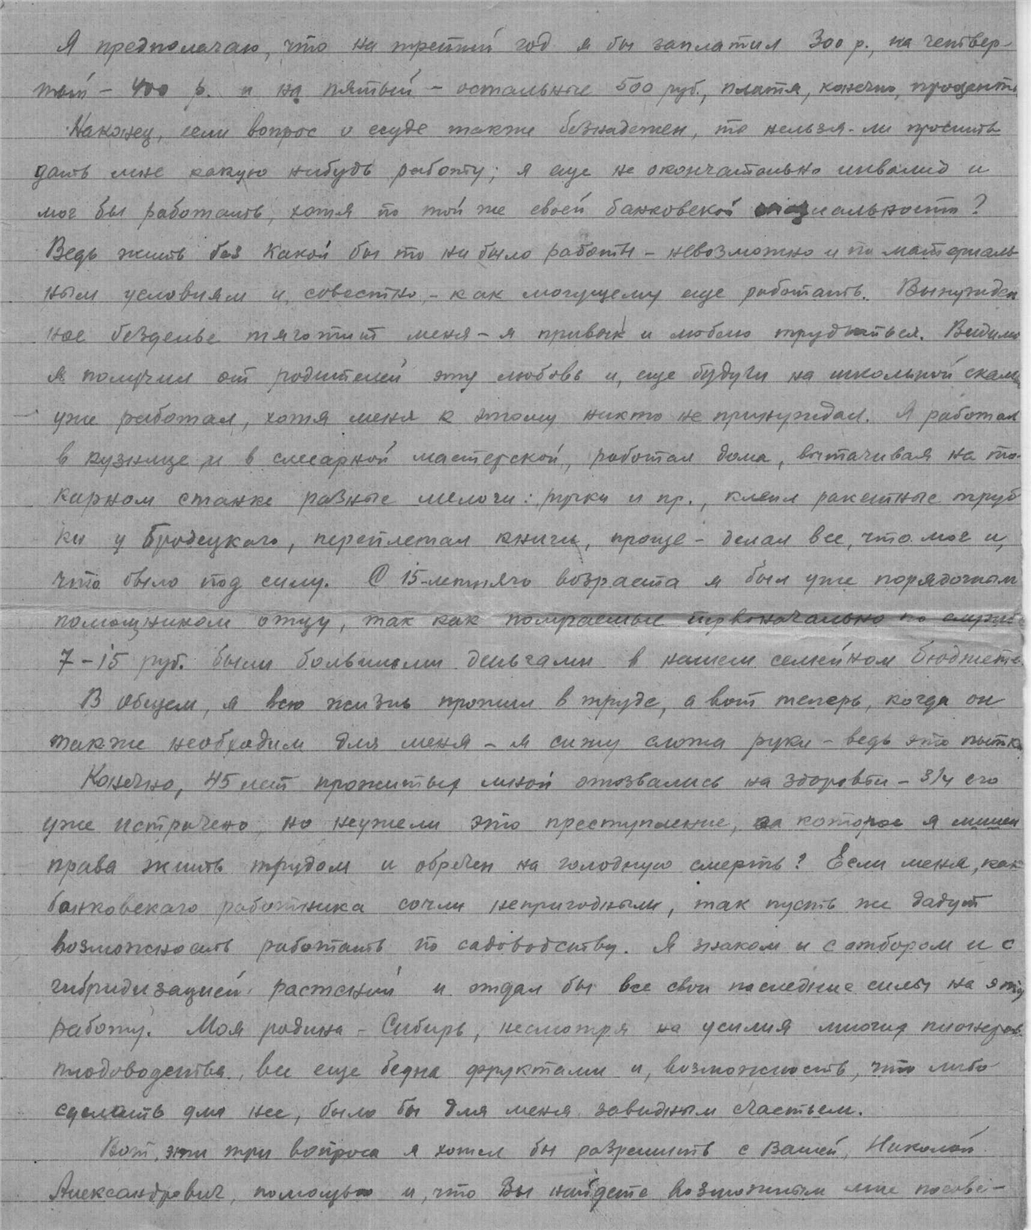 Я предполагаю, что на третий год я бы заплатил 300 р., на четвер-
тый – 400 р. и на пятый – остальные 500 руб., платя, конечно, проценты
Наконец, если вопрос о ссуде также безнадежен, то нельзя-ли просить
дать мне какую нибудь работу; я еще не окончательно инвалид и
мог бы работать, хотя по той же своей банковской специальности?
Ведь жить без какой бы то ни было работы – невозможно и по материаль
ным условиям и, совестно, – как могущему еще работать. Вынужден
ное безделье тяготит меня – я привык и люблю трудиться. Видимо
я получил от родителей эту любовь и, еще будучи на школьной скамье
уже работал, хотя меня к этому никто не принуждал. Я работал
в кузнице и в слесарной мастерской, работал дома, вытачивая на то-
карном станке разные мелочи: ручки и пр., клеил ракетные труб
ки у Бродецкого, переплетал книги, проще – делал все, что мог и,
что было под силу. С 15-летняго возраста я был уже порядочным
помощником отцу, так как получаемые первоначально по службе
7–15 руб. были большими деньгами в нашем семейном бюджете.
В общем, я всю жизнь прожил в труде, а вот теперь, когда он
также необходим для меня – я сижу сложа руки – ведь это пытка
Конечно, 45 лет прожитых мной отозвались на здоровьи – 3/4 его
уже истрачено, но неужели это преступление, за которое я лишен
права жить трудом и обречен на голодную смерть? Если меня, как
банковского работника сочли непригодным, так пусть же дадут
возможность работать по садоводству. Я знаком и с отбором и с
гибридизацией растений и отдал бы все свои последние силы на эту
работу. Моя родина – Сибирь, несмотря на усилия многих пионеров
плодоводства, все еще бедна фруктами и, возможность, что либо
сделать для нее, было бы для меня завидным счастьем.
Вот эти три вопроса я хотел бы разрешить с Вашей, Николай
Александрович, помощью и, что Вы найдете возможным мне посове-